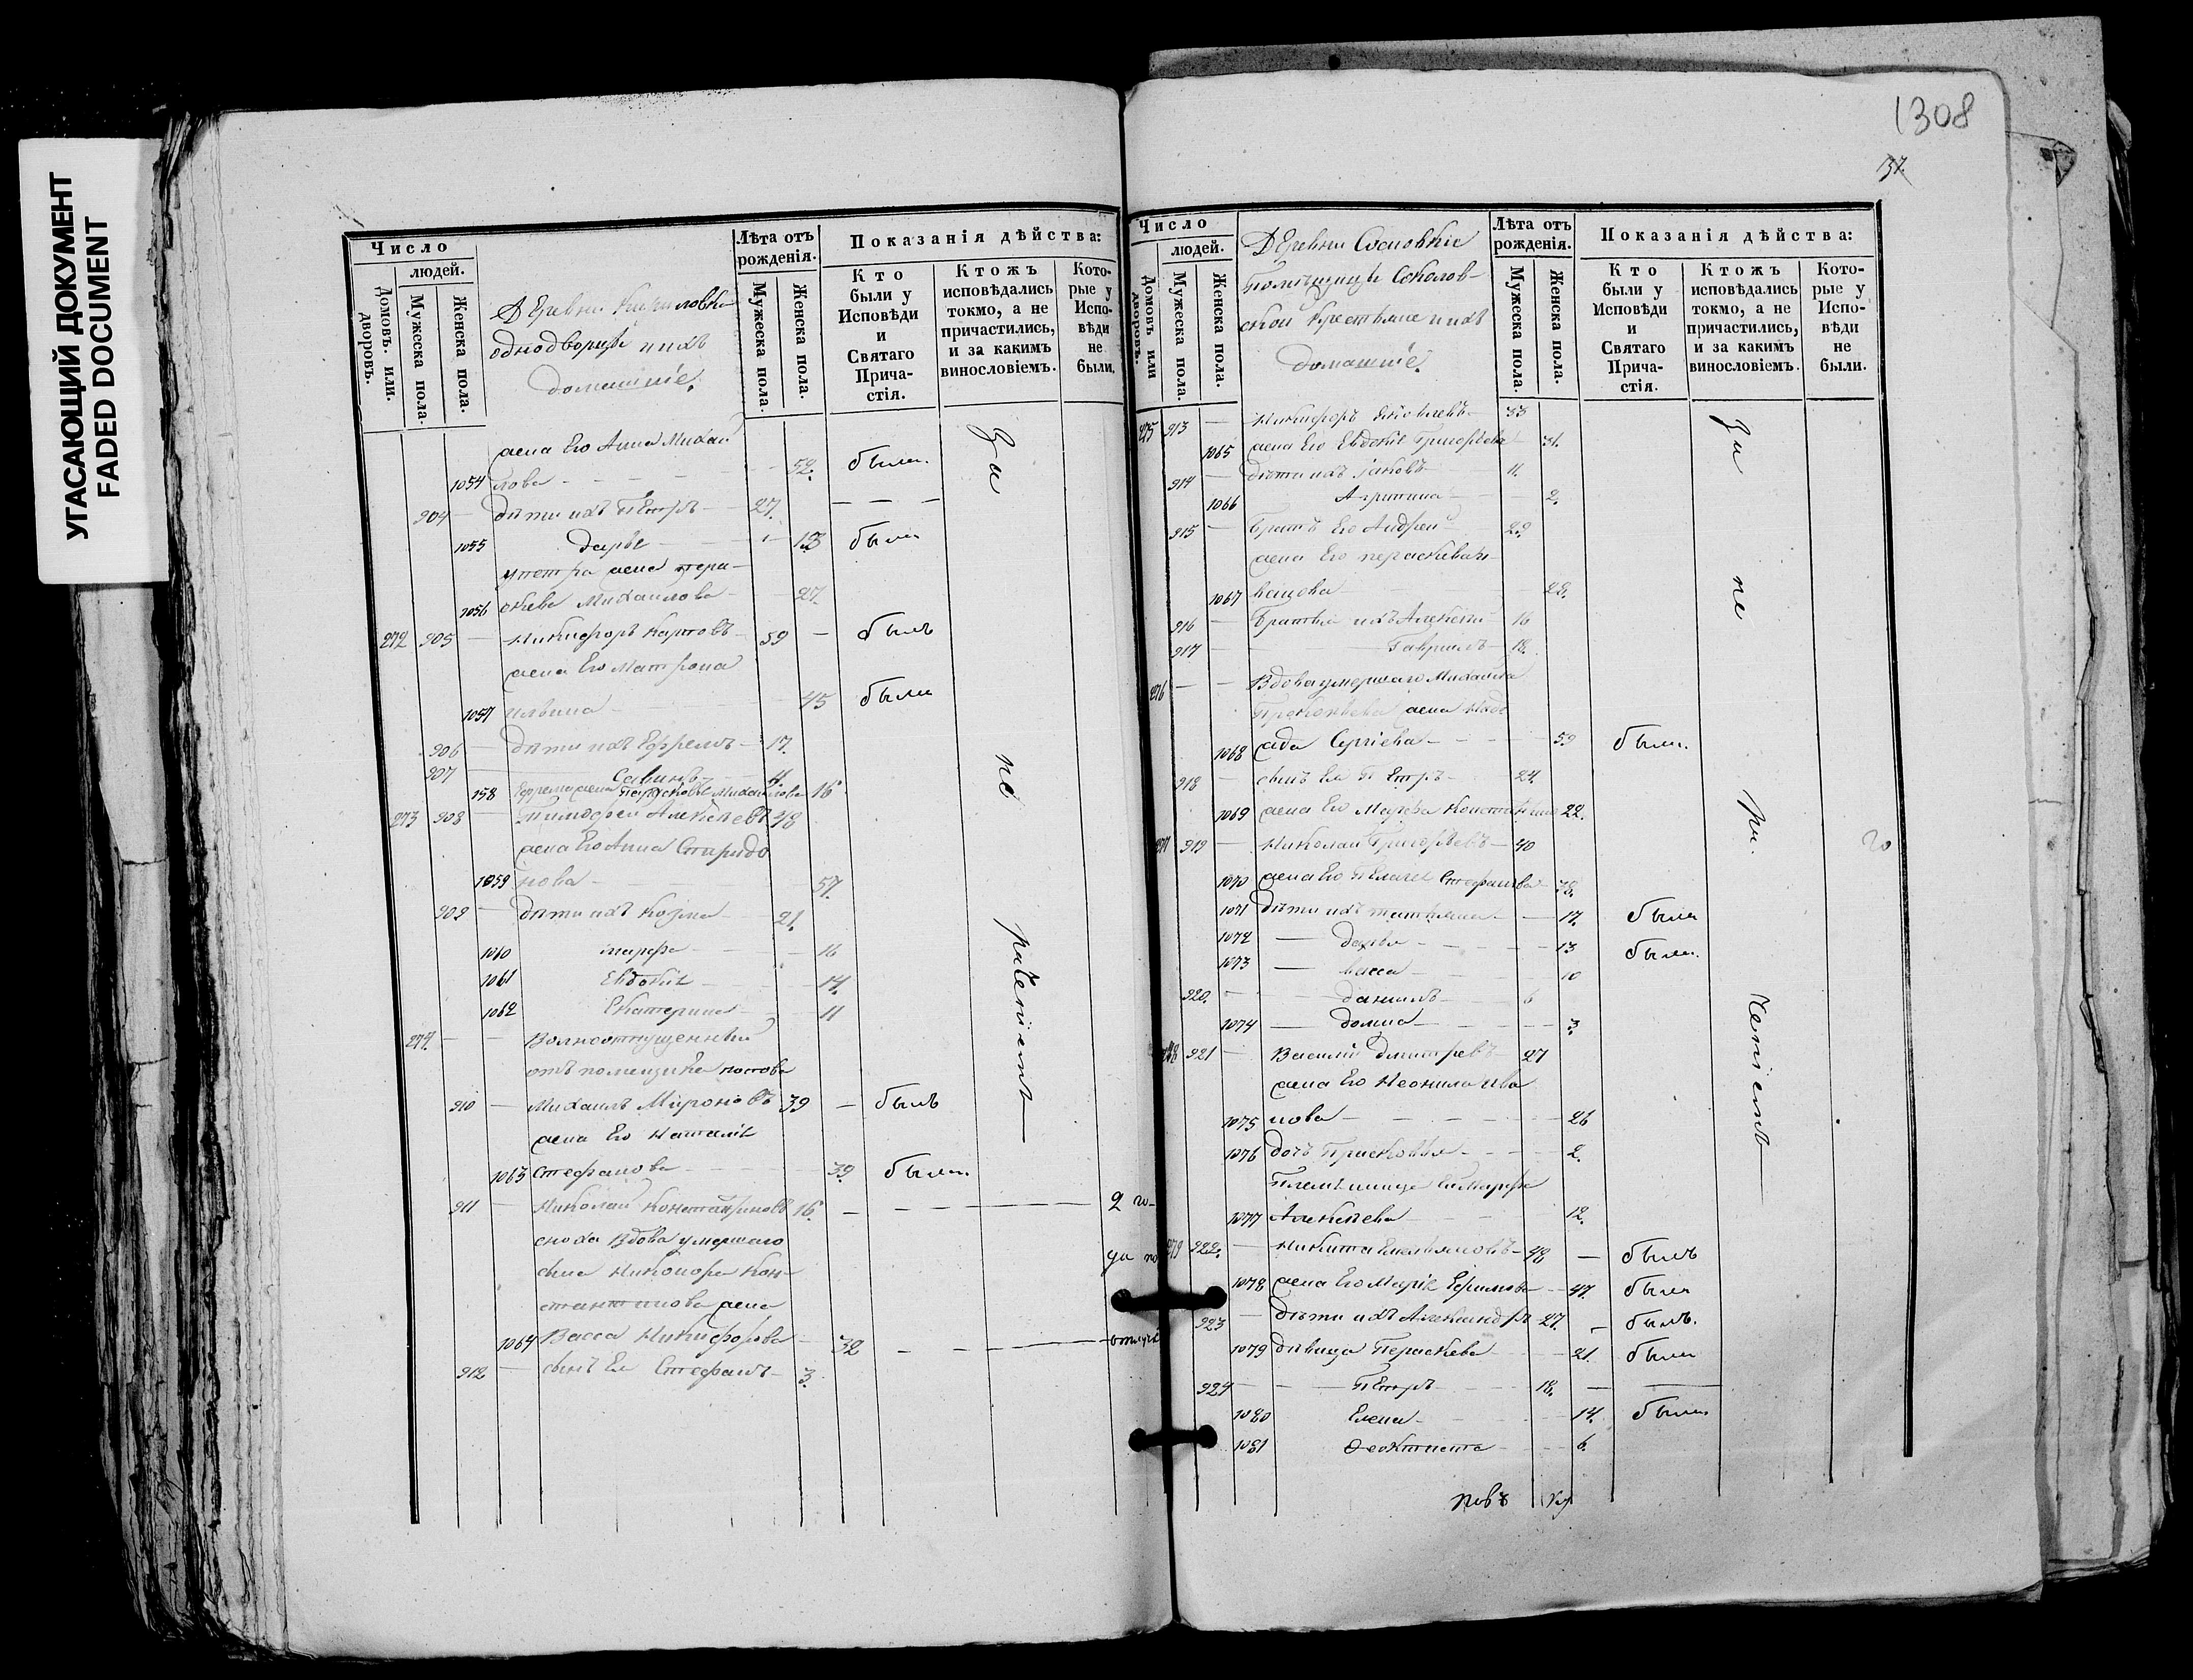 УГАСАЮЩИЙ ДОКУМЕНТ
FADED DOCUMENT
Число
людей.
Домовъ или дворовъ.
Мужеска пола.
Женска пола.
Деревни
однодворцы и ихъ
домашніе.
Лѣта отъ рожденія.
Мужеска пола.
Женска пола.
Показанія дѣйства:
Кто были у Исповѣди и Святаго Причастія.
Ктожъ исповѣдались токмо, а не причастились, и за какимъ винословіемъ.
Которые у Исповѣди не были.
За не раченіемъ
жена Его Анна Михаи
1054 лова 52. была
904 дѣти ихъ Петръ 27.
1055 Дарья 13 была
у петра жена пера
1056 скева Михаилова 27.
272 905 Никифоръ Карповъ 59 былъ
жена Его Матрона
1057 ильина 45 была
906 дѣти ихъ Ефремъ 17.
907 Савинъ
158 Ефрема жена Михаилова 16
273 908 Тимофей Алексѣевъ 48
жена Его Анна Спиридо
1059 нова 57.
909 дѣти ихъ Козма 21.
1060 марфа 16
1061 Евдокія 14.
1062 Екатерина 11
274. Волноотпущенный
отъ помещика
910 Михаилъ Мироновъ 39 былъ
жена Его Наталія
1063 Стефанова 39. была
911 Николай Константиновъ 16. 2 го-
сноха вдова умершаго да по
сына Никонора Кон-
стантинова жена
1064 Васса Никифорова 32
912 сынъ Ея Стефанъ 3.
1308
137.
Число
людей.
Домовъ или дворовъ.
Мужеска пола.
Женска пола.
Деревни Сосновки
Помѣщицы Соколов-
ской крестьяне и ихъ
домашніе.
Лѣта отъ рожденія.
Мужеска пола.
Женска пола.
Показанія дѣйства:
Кто были у Исповѣди и Святаго Причастія.
Ктожъ исповѣдались токмо, а не причастились, и за какимъ винословіемъ.
Которые у Исповѣди не были.
За не ра ченіемъ
275 913 Никифоръ Яковлевъ 33
1065 жена Его Евдокія Григорьева 31.
914 дѣти ихъ Іаковъ 11.
1066 Агрипина 2.
915 Братъ Его Андрей 29.
жена Его пераскева
1067 22.
916 Братья ихъ Алексѣй 16
917 Гавріилъ 18.
276 Вдова умершаго Михайла
Прокофьева жена Наде
1068 жда Сергіева 59 была.
918 сынъ Ея Петръ 24.
1069 жена Его Марфа 22.
277 919 Николай Григорьевъ 40
1070 жена Его Пелагея Стефанова 38.
1071 дѣти ихъ татьяна 17. была
1072 Дарья 13 была.
1073 васса 10
920. даніилъ 6
1074 домна 3.
278 921 Василій Димитревъ 27
жена Его Неонила Ива
1075 нова 26
1076 дочь Прасковья 2.
Племянница Его Марфа
1077 Алексѣева 12.
279 922. Никита Емельяновъ 48 былъ
1078 жена Его Марія Ефимова 47. была
923 дѣти ихъ Александръ 27. былъ.
1079 дѣвица Пераскева 21. была
924 Петръ 18.
1080 Елена 14. была
1081 Феоктиста 6.